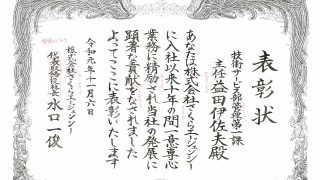 表彰状
技術サービス部営業第一課
主任益田伊佐夫殿
あなたは株式会社さくらエージェンシー
に入社以来十年の間一意専心
業務に精励され当社の発展に
顕著な貢献をなされました
よってここに表彰いたします
令和元年十一月六日
株式会社さくらエージェンシー
代表取締役社長 水口一俊